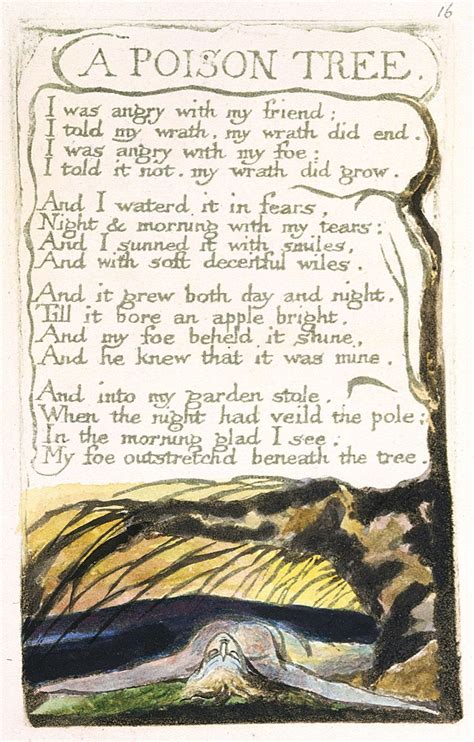 16
A POISON TREE.
I was angry with my friend;
I told my wrath, my wrath did end.
I was angry with my foe:
I told it not. my wrath did grow.
And I waterd it in fears,
Night & morning with my tears:
And I sunned it with smiles,
And with soft deceitful wiles.
And it grew both day and night.
Till it bore an apple bright.
And my foe beheld it shine,
And he knew that it was mine.
And into my garden stole.
When the night had veild the pole;
In the morning glad I see.
My foe outstretchd beneath the tree.